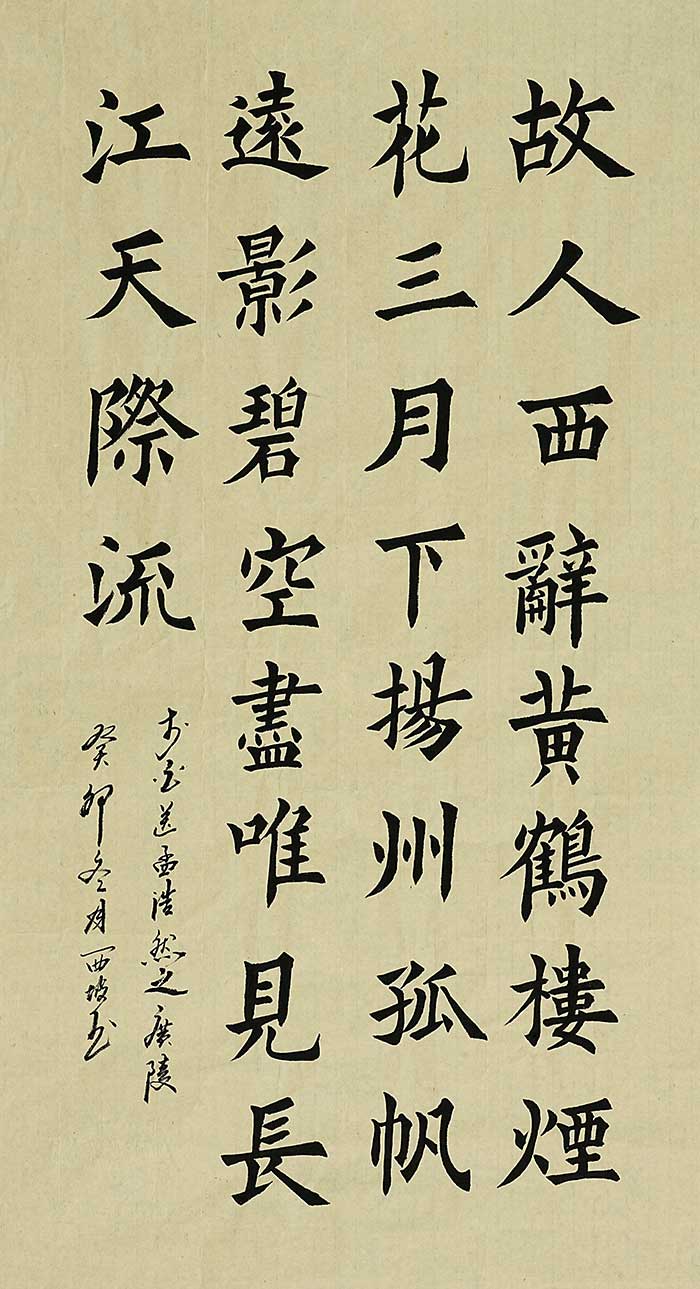 故人西辭黃鶴樓煙
花三月下揚州孤帆
遠影碧空盡唯見長
江天際流
送孟浩然之廣陵
癸卯冬月西坡